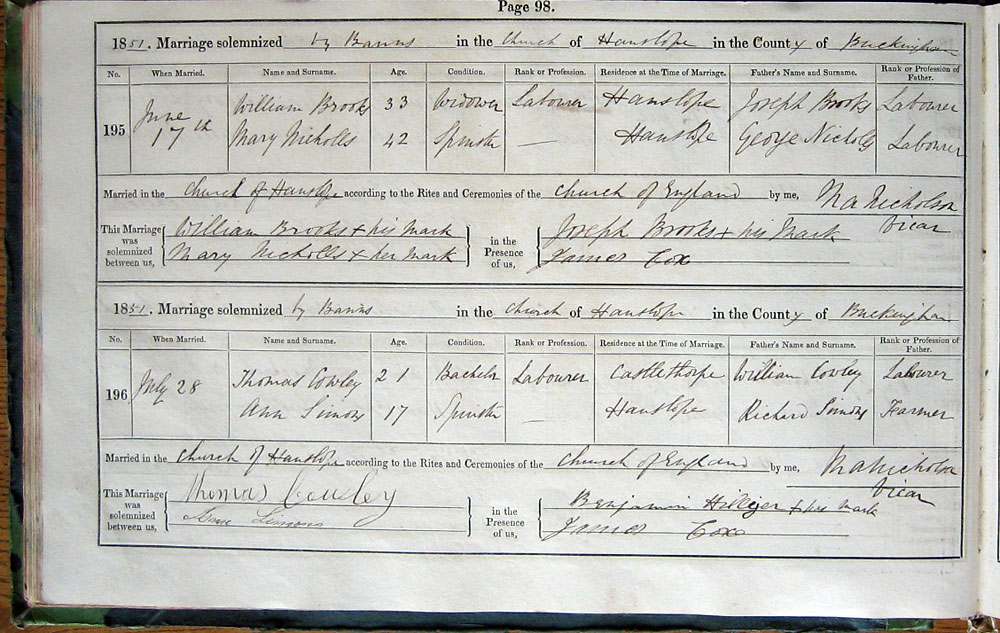 Page 98.
1851. Marriage solemnized by Banns in the Church of Hanslope in the County of Buckingham
No. When Married. Name and Surname. Age. Condition. Rank or Profession. Residence at the Time of Marriage. Father's Name and Surname. Rank or Profession of Father.
195 June 17th William Brooks 33 Widower Labourer Hanslope Joseph Brooks Labourer
Mary Nicholls 42 Spinster — Hanslope George Nicholls Labourer
Married in the Church of Hanslope according to the Rites and Ceremonies of the Church of England by me, M A Nicholson
Vicar
This Marriage was solemnized between us, William Brooks x his Mark in the Presence of us, Joseph Brooks x his Mark
Mary Nicholls x her Mark James Cox
1851. Marriage solemnized by Banns in the Church of Hanslope in the County of Buckingham
No. When Married. Name and Surname. Age. Condition. Rank or Profession. Residence at the Time of Marriage. Father's Name and Surname. Rank or Profession of Father.
196 July 28 Thomas Cowley 21 Bachelor Labourer Castlethorpe William Cowley Labourer
Ann Simons 17 Spinster — Hanslope Richard Simons Farmer
Married in the Church of Hanslope according to the Rites and Ceremonies of the Church of England by me, M A Nicholson
Vicar
This Marriage was solemnized between us, Thomas Cowley in the Presence of us, Benjamin x his mark
Simons James Cox